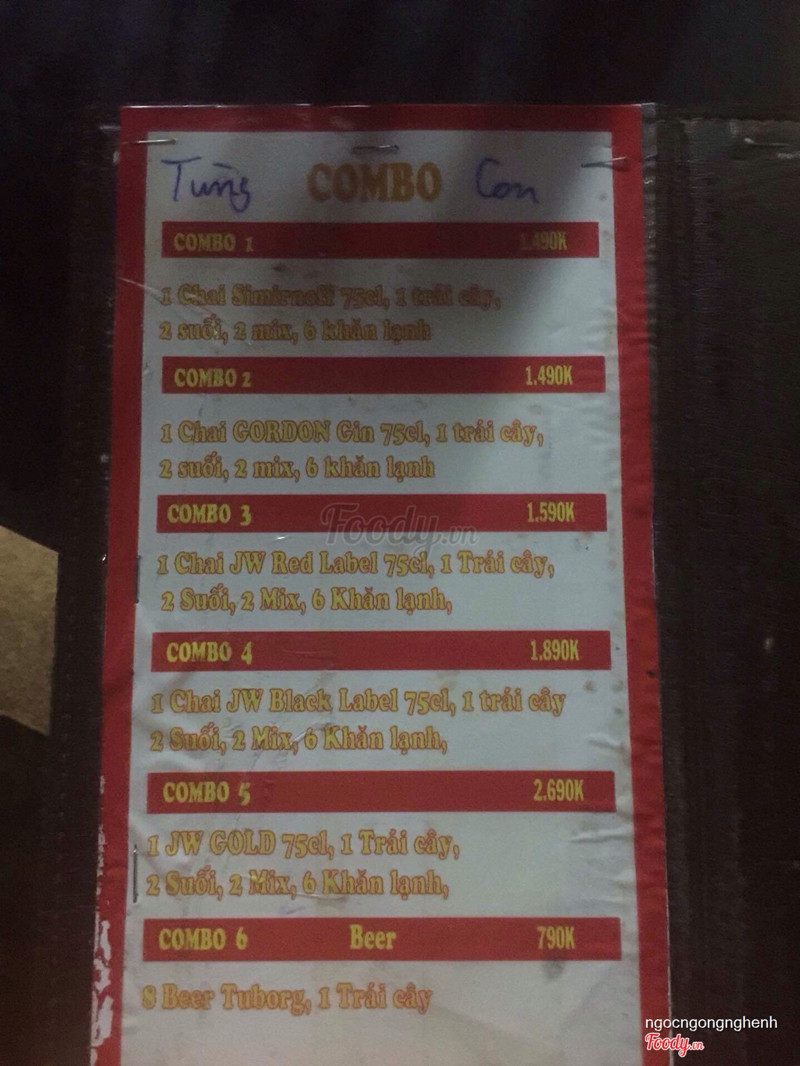 Tùng COMBO Con
COMBO 1 1.490K
1 Chai Simirnoff 75cl, 1 trái cây,
2 suối, 2 mix, 6 khăn lạnh
COMBO 2 1.490K
1 Chai GORDON Gin 75cl, 1 trái cây,
2 suối, 2 mix, 6 khăn lạnh
COMBO 3 1.590K
Foody.vn
1 Chai JW Red Label 75cl, 1 Trái cây,
2 Suối, 2 Mix, 6 Khăn lạnh,
COMBO 4 1.890K
1 Chai JW Black Label 75cl, 1 trái cây
2 Suối, 2 Mix, 6 Khăn lạnh,
COMBO 5 2.690K
1 JW GOLD 75cl, 1 Trái cây,
2 Suối, 2 Mix, 6 Khăn lạnh,
COMBO 6 Beer 790K
8 Beer Tuborg, 1 Trái cây
ngocngongnghenh
Foody.vn